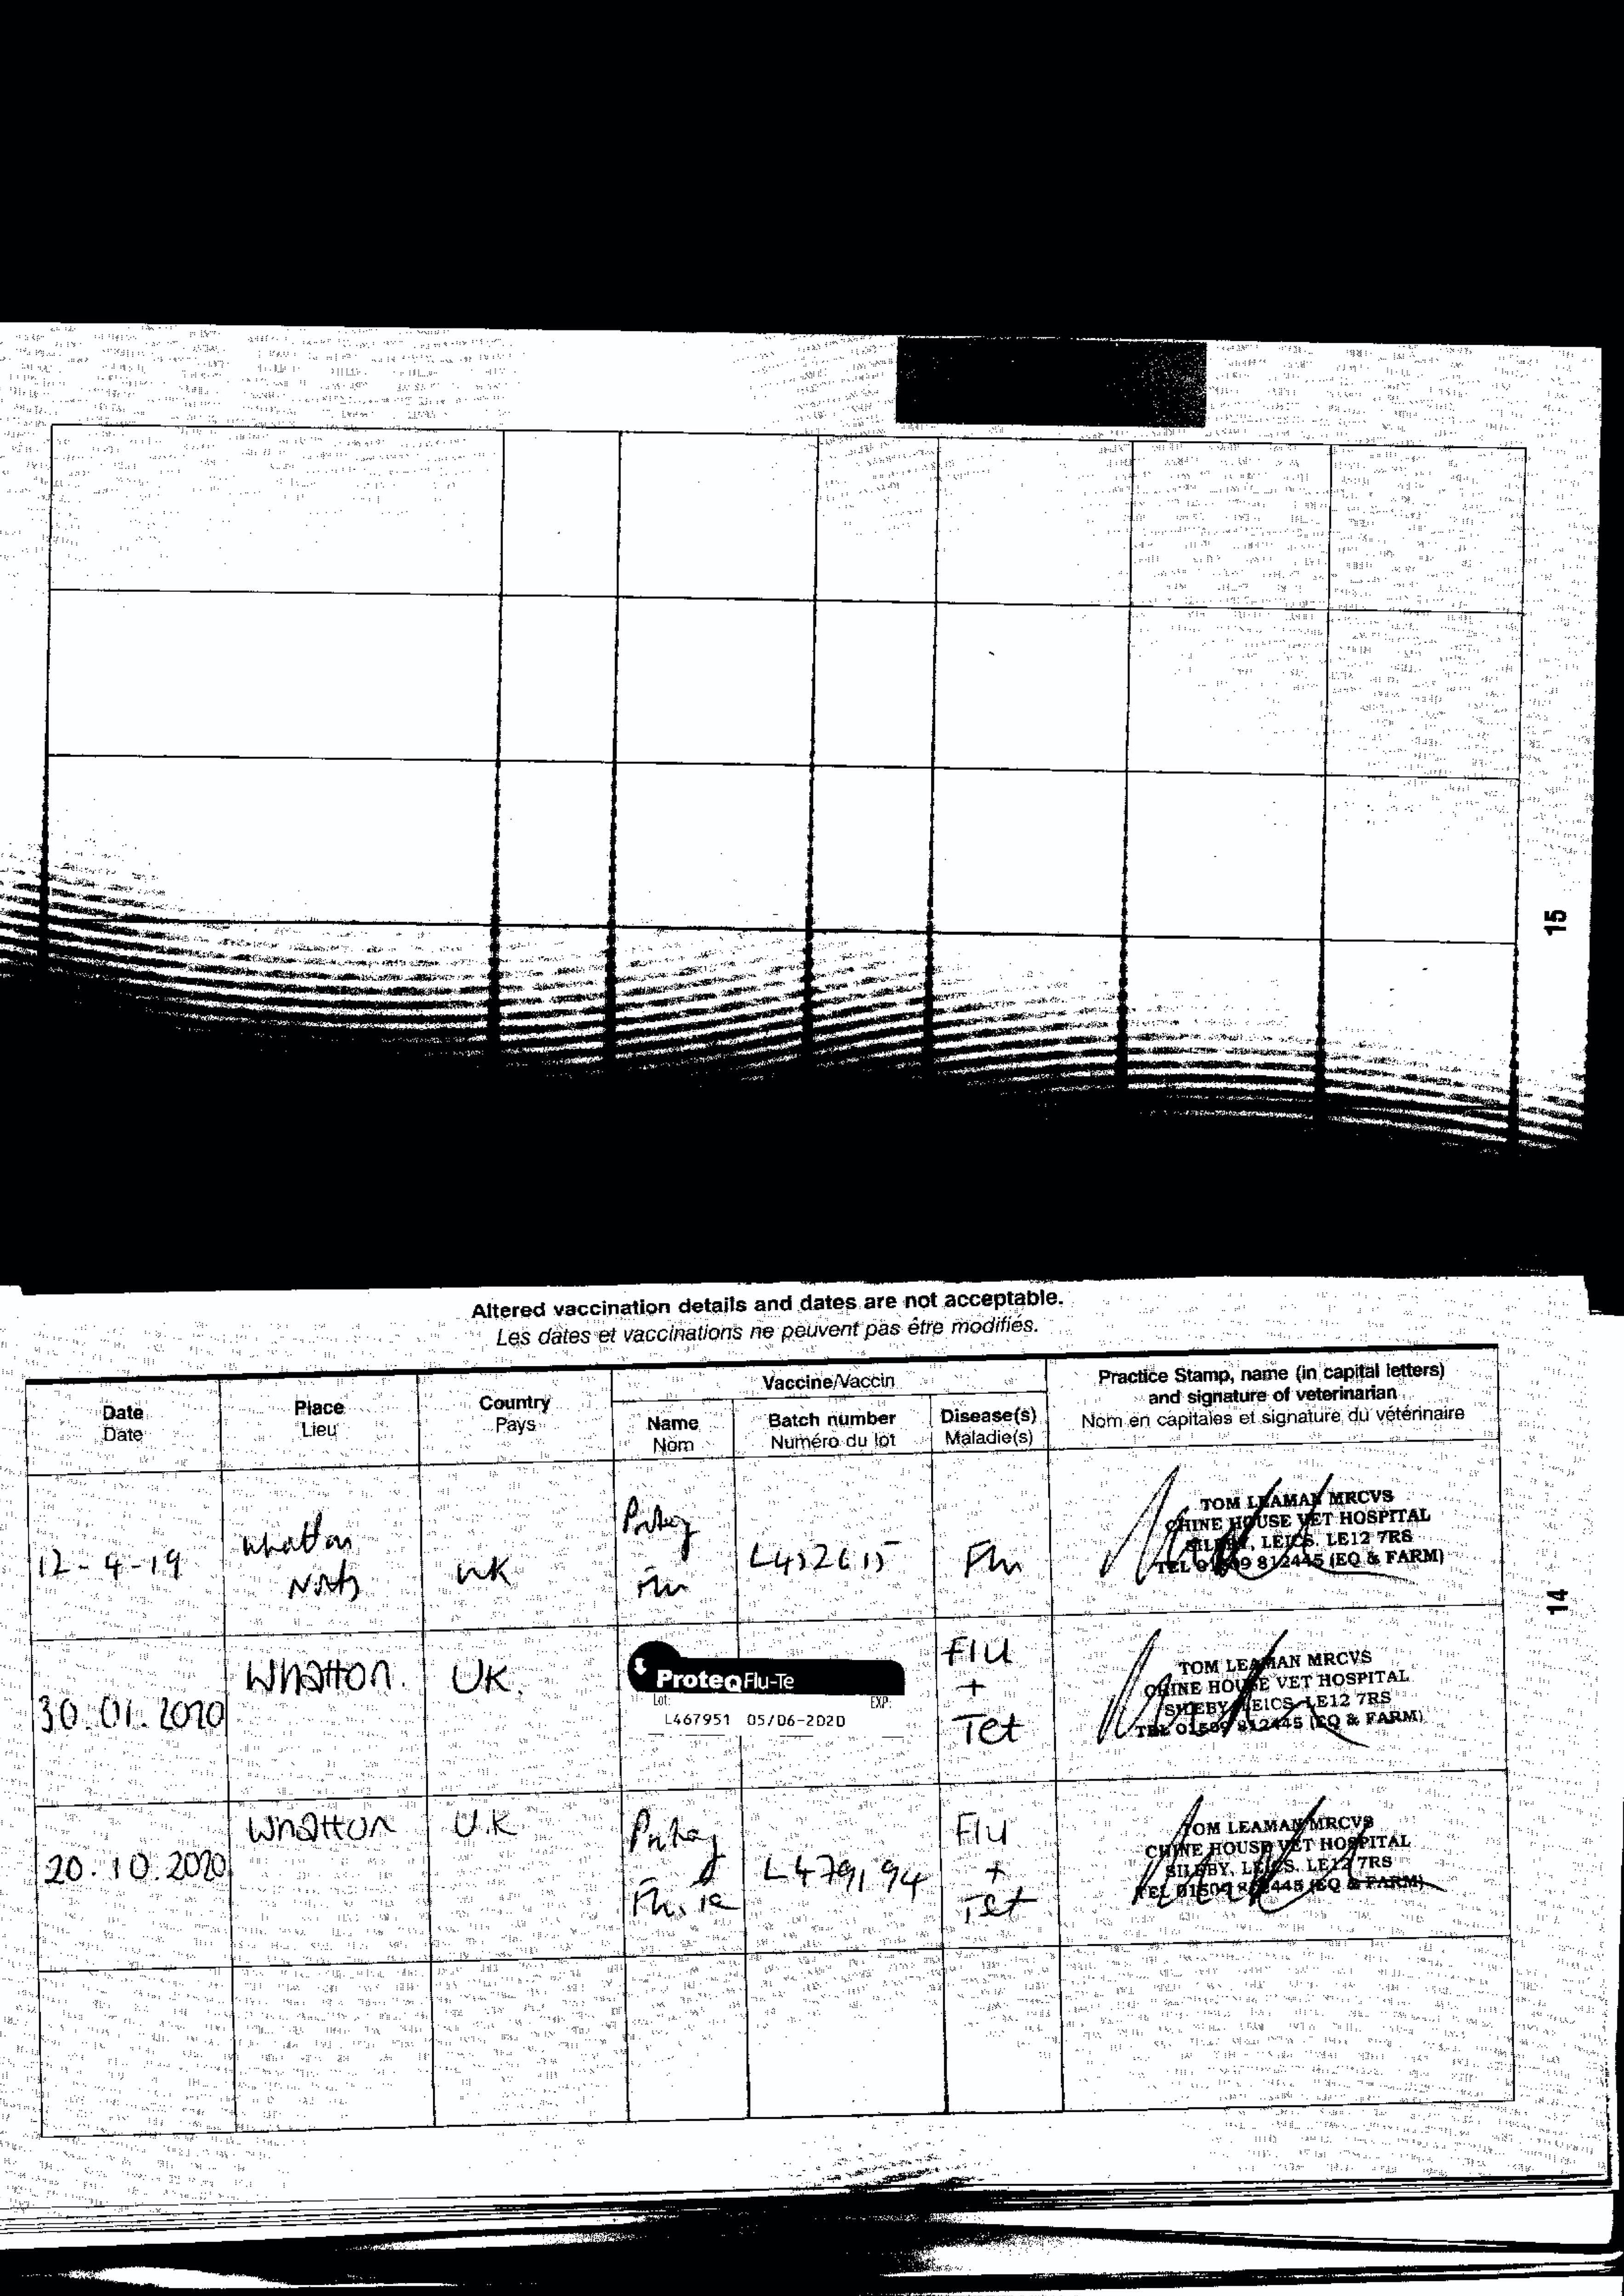 15
Altered vaccination details and dates are not acceptable.
Les dates et vaccinations ne peuvent pas être modifiés.
Date
Date
Place
Lieu
Country
Pays
Vaccine/Vaccin
Name
Nom
Batch number
Numéro du lot
Disease(s)
Maladie(s)
Practice Stamp, name (in capital letters)
and signature of veterinarian
Nom en capitales et signature du vétérinaire
12-4-19
Whatton
Notts
UK
Proteq
Flu
Flu
TOM LEAMAN MRCVS
CHINE HOUSE VET HOSPITAL
SILEBY, LEICS. LE12 7RS
TEL 01509 812445 (EQ & FARM)
14
30.01.2020
Whatton.
UK.
ProteqFlu-Te
Lot: EXP:
L467951 05/06-2020
Flu
+
Tet
TOM LEAMAN MRCVS
CHINE HOUSE VET HOSPITAL
SILEBY, LEICS. LE12 7RS
TEL 01509 812445 (EQ & FARM)
20.10.2020
Whatton
U.K
Proteq
Flu. Te
L479194
Flu
+
Tet
TOM LEAMAN MRCVS
CHINE HOUSE VET HOSPITAL
SILEBY, LEICS. LE12 7RS
TEL 01509 812445 (EQ & FARM)